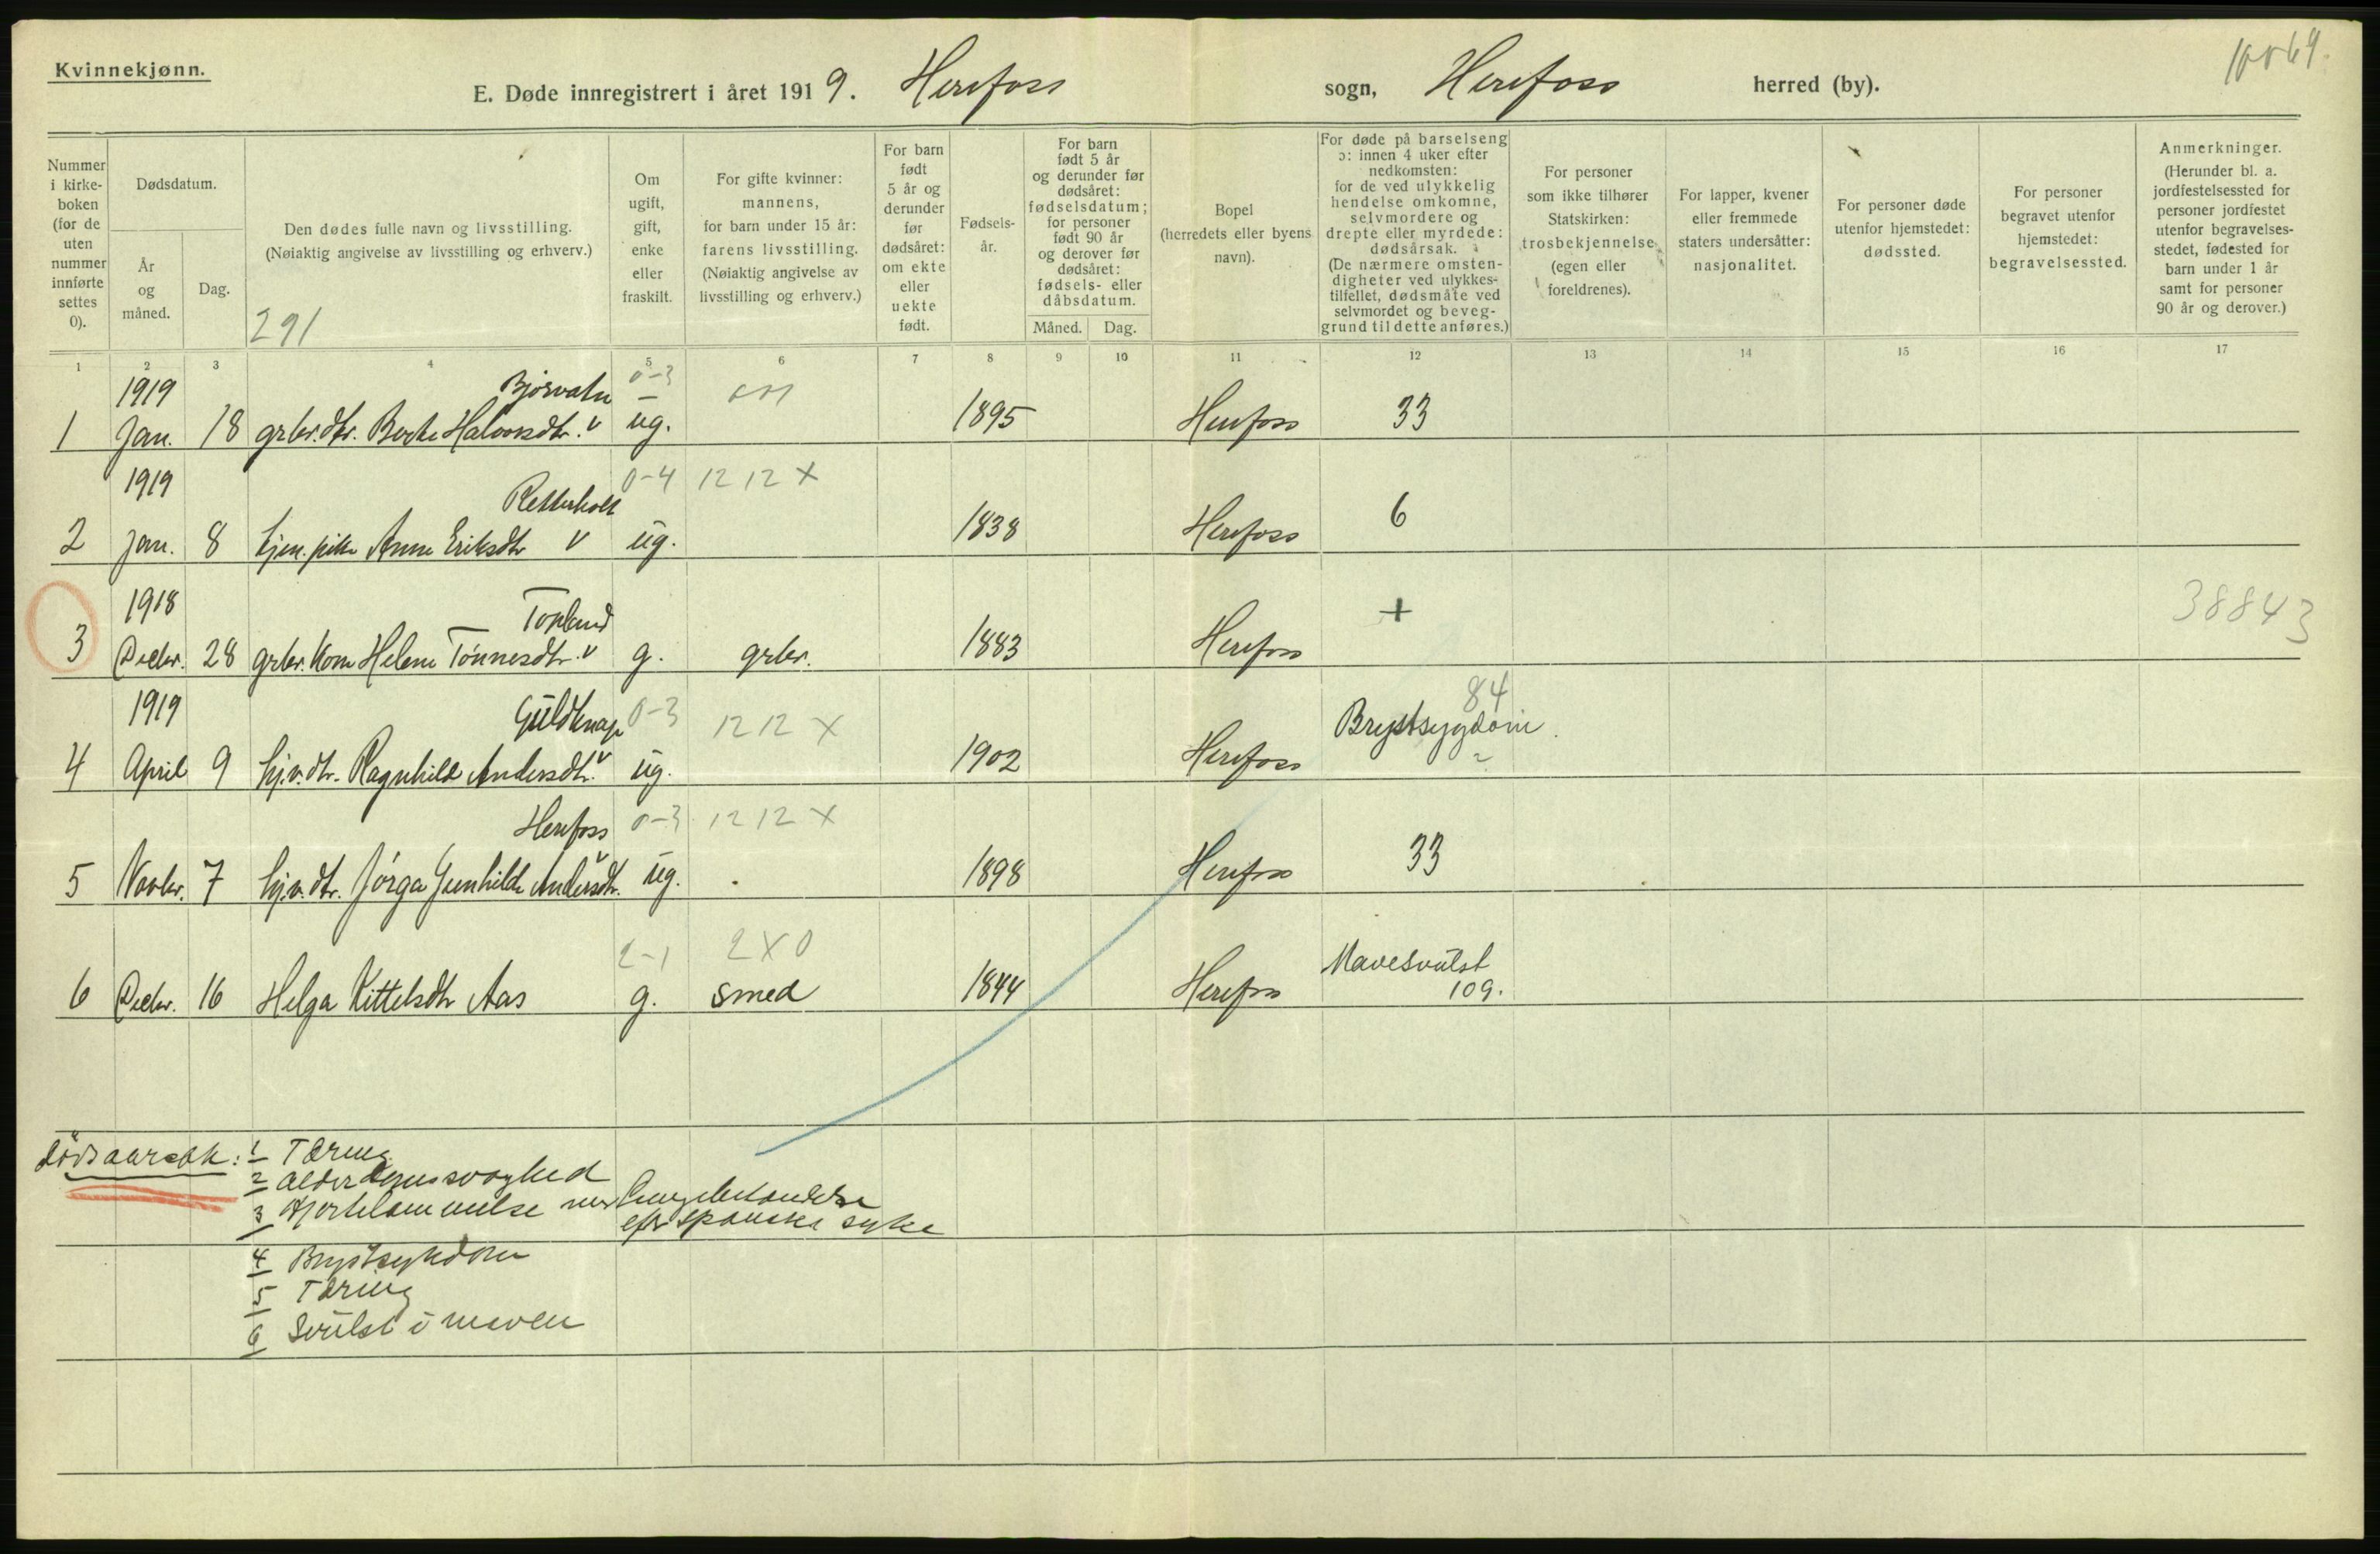 Kvinnekjønn.
E. Døde innregistrert i året 1919. Herefoss sogn, Herefoss herred (by).
Nummer i kirkeboken (for de uten nummer innførte settes 0).
Dødsdatum.
År og måned.
Dag.
Den dødes fulle navn og livsstilling.
(Nøiaktig angivelse av livsstilling og erhverv.)
291
Om ugift, gift, enke eller fraskilt.
For gifte kvinner: mannens, for barn under 15 år: farens livsstilling. (Nøiaktig angivelse av livsstilling og erhverv.)
For barn født 5 år og derunder før dødsåret: om ekte eller uekte født.
Fødsels-år.
For barn født 5 år og derunder før dødsåret: fødselsdatum; for personer født 90 år og derover før dødsåret: fødsels- eller dåbsdatum.
Måned. Dag.
Bopel (herredets eller byens navn).
For døde på barselseng ɔ: innen 4 uker efter nedkomsten: for de ved ulykkelig hendelse omkomne, selvmordere og drepte eller myrdede: dødsårsak. (De nærmere omstendigheter ved ulykkestilfellet, dødsmåte ved selvmordet og beveggrund til dette anføres.)
For personer som ikke tilhører Statskirken: trosbekjennelse (egen eller foreldrenes).
For lapper, kvener eller fremmede staters undersåtter: nasjonalitet.
For personer døde utenfor hjemstedet: dødssted.
For personer begravet utenfor hjemstedet: begravelsessted.
Anmerkninger.
(Herunder bl. a. jordfestelsessted for personer jordfestet utenfor begravelsesstedet, fødested for barn under 1 år samt for personer 90 år og derover.)
1 2 3 4 5 6 7 8 9 10 11 12 13 14 15 16 17
1919 Bjorvatn 0-3
1 Jan. 18 grbr. dtr. Berte Halvorsdtr. v ug. 1895 Herefoss 33
1919 Retterholt 0-4 12 12 X
2 Jan. 8 tjen. pike Anne Eriksdtr v ug. 1838 Herefoss 6
1918 Topland + 38843
3 Decbr. 28 grbr. kone Helene Tønnesdtr. v g. grbr. 1883 Herefoss
1919 Guldknap 0-3 12 12 X 84
4 April 9 hj.v. dtr. Ragnhild Andersdtr. v ug. 1902 Herefoss Brystsygdom.
Herefoss 0-3 12 12 X
5 Novbr. 7 hj.v. dtr. Jørga Gunhilde Andersdtr. v ug. 1898 Herefoss 33
2-1 2 X 0 Mavesvulst
6 Decbr. 16 Helga Kittelsdtr Aas g. Smed 1844 Herefoss 109.
Dödsaarsak: 1 Tæring
2 Alderdomssvaghed
3 Hjertelammelse
efter spanske syke
4 Brystsykdom
5 Tæring
6 Svulst i maven